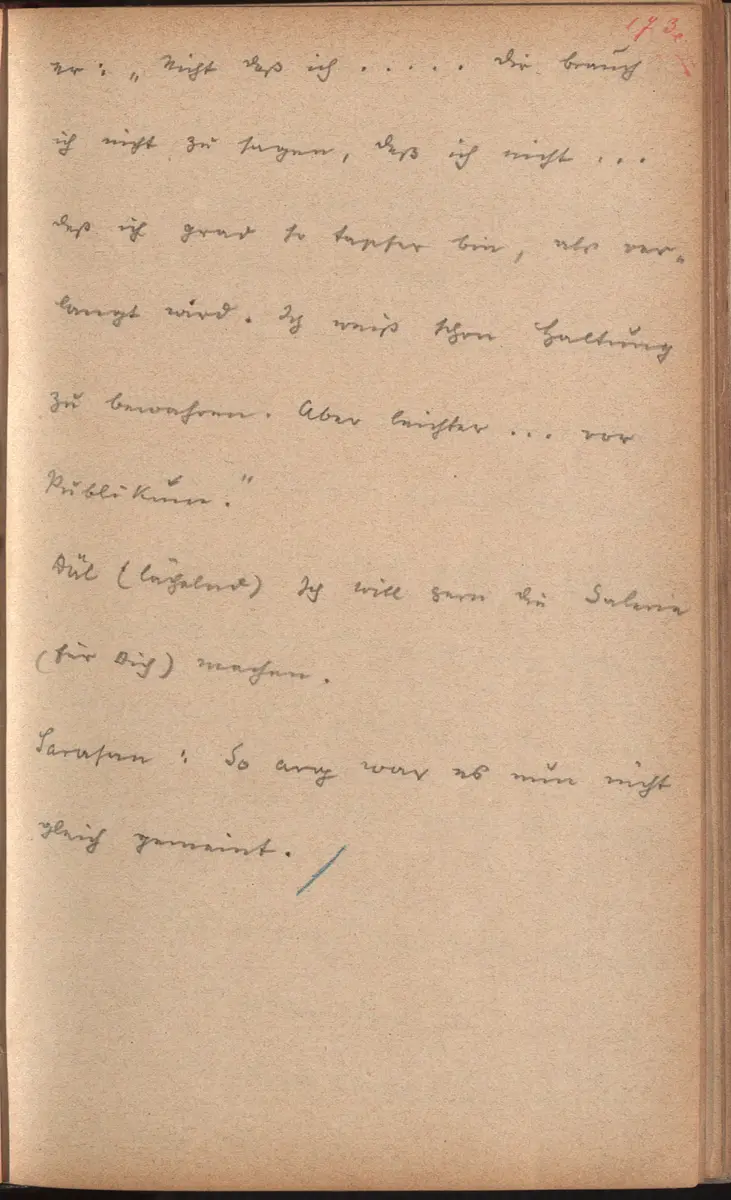 173.
er: „Nicht daß ich ..... Dir brauch
ich nicht zu sagen, daß ich nicht ...
daß ich grad so tapfer bin, als ver-
langt wird. Ich weiß schon Haltung
zu bewahren. Aber leichter ... vor
Publikum."
(lächelnd) Ich will gern die Galerie
(für Dich) machen.
Sarasan: So arg war es nun nicht
gleich gemeint.